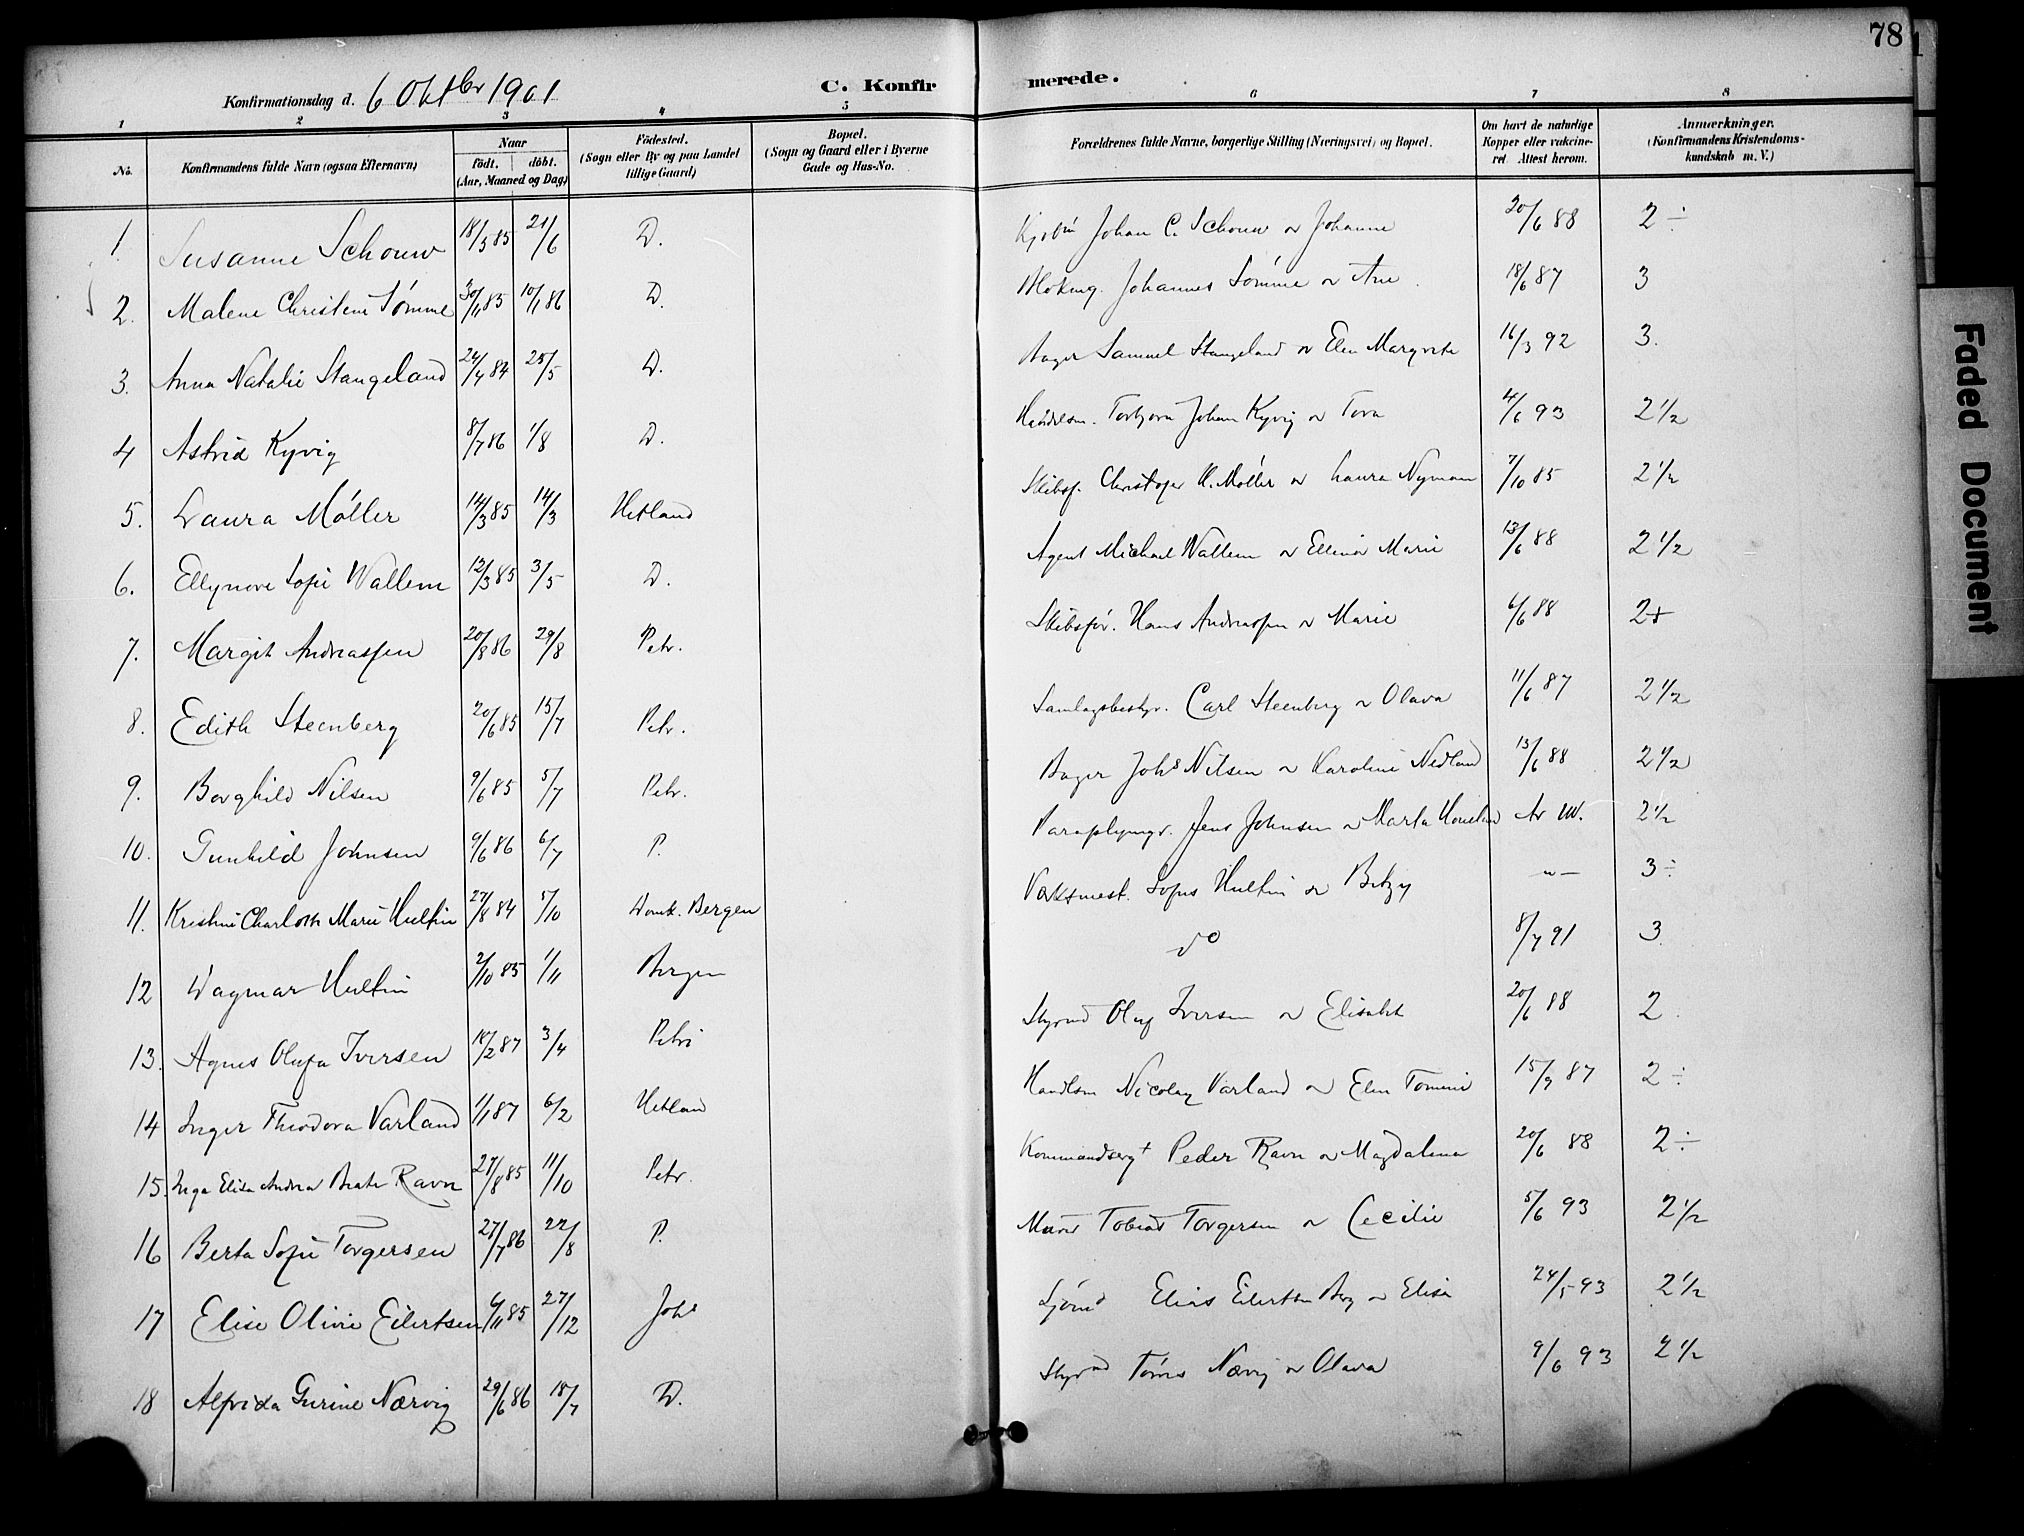 78
Konfirmationsdag d. 6 Oktbr 1901
C. Konfirmerede.
1 2 3 4 5 6 7 8
No. Konfirmandens fulde Navn (ogsaa Efternavn) Naar födt. döbt. (Aar, Maaned og Dag) Födested. (Sogn eller By og paa Landet tillige Gaard) Bopæl. (Sogn og Gaard eller i Byerne Gade og Hus-No. Forældrenes fulde Navne, borgerlige Stilling (Næringsvei) og Bopæl. Om havt de naturlige Kopper eller vakcineret. Attest herom. Anmærkninger. (Konfirmandens Kristendomskundskab m. V.)
1. Susanne Schouw 18/5 85 21/6 D. Johan C. Schouw og Johanne 20/6 88 2 ÷
2. Malene Christine Sømme 30/11 85 10/1 86 D. Johannes Sømme og Ane 18/6 87 3
3. Anna Natalie Stangeland 24/4 84 25/5 D. Bager Samuel Stangeland og Elen Margrete 16/3 92 3.
4 Astrid Kyvig 8/7 86 1/8 D. Handelsm. Torbjørn Johan Kyvig og Tora 4/6 93 2 1/2
5. Laura Møller 14/3 85 14/3 Hetland Skibsf. Christofer H. Møller og Laura Nyman 7/10 85 2 1/2
6. Ellynore Sofie Wallem 12/3 85 3/5 D. Agent Michael Wallem og Ellinor Marie 13/6 88 2 1/2
7. Margit Andreassen 20/8 86 29/8 Petr. Skibsfør. Hans Andreassen og Marie 6/6 88 2+
8. Edith Steenberg 20/6 85 15/7 Petr. Samlagsbestyr. Carl Steenberg og Olava 11/6 87 2 1/2
9. Borghild Nilsen 9/6 85 5/7 Petr. Bager Johs Nilsen og Karoline Nedland 13/6 88 2 1/2
10. Gunhild Johnsen 9/6 86 6/7 P. Paraplymgr. Jens Johnsen og Marta 2 1/2
11. Kristine Charlotte Marie Hultin 27/8 84 5/10 Domk. Bergen Værksmest. Sofus Hultin og Betzy -"- 3 ÷
12 Dagmar Hultin 2/10 85 1/11 Bergen do 8/7 91 3
13. Agnes Olufa Iversen 18/2 87 3/4 Petri Styrmd Oluf Iversen og Elisabet 20/6 88 2
14 Inger Theodora Varland 1/1 87 6/2 Hetland Handlsm Nicolay Varland og Elen Tomine 15/9 87 2 ÷
15. Inga Elisa Andrea Beate Ravn 27/8 85 11/10 Petr. Kommandsergt Peder Ravn og Magdalena 20/6 88 2 ÷
16 Berta Sofie Torgersen 27/7 86 22/8 P. Murer Tobias Torgersen og Cecilie 5/6 93 2 1/2
17 Elise Olivie Eilertsen 6/11 85 27/12 Johs Sjømd Elias Eilertsen Berg og Elisa 24/5 93 2 1/2
18 Alfrida Gurine Nærvig 29/6 86 18/7 D. Styrmd Tønnes Nærvig og Olava 9/6 93 2 1/2
Faded Document